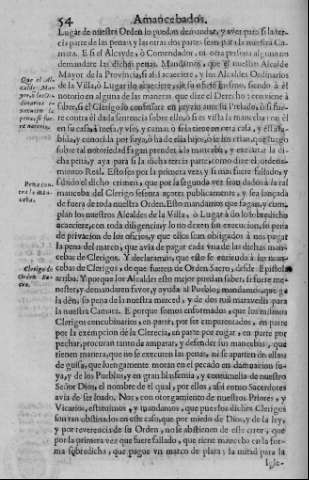 54 Amancebados.
Lugar de nuestra Orden lo puedan demandar, y aver para si la ter-
cia parte de las penas, y las otras dos partes sean para la nuestra Ca-
mara. E si el Alcayde, ò Comendador, ni otra persona alguna no
demandare las dichas penas. Mandamos, que el nuestro Alcalde
Mayor de la Provincia, si alsi acaeciere, y los Alcaldes Ordinarios
de la Villa, ò Lugar do acaeciere, de su oficio mismo, siendo à èl
notorio en alguna de las maneras que dize el Derecho: conviene à
saber, si el Clerigo lo confessare en juyzio ante su Prelado, ò si fue-
re contra èl dada sentencia sobre ello, ò si es vista la manceba con èl
en su casa, à mesa, y
y conocida por suya, ò ha de ella hijo
sobre tal notoriedad sagan prender à la manceba, y executar la di-
cha pena, y aya para si la dicha tercia parte, como dize el ordena-
miento Real. Esto por la primera vez, y si mas fuere fallado, y
sabido el dicho crimen, que por la segunda vez sean dados à la tal
manceba del Clerigo sesenta açotes publicamente, y sea lançada
de fuera de toda nuestra Orden. Esto mandamos que fagan, y cum-
plan los nuestros Alcaldes de la Villa, ò Lugar à do lo sobredicho
acaeciere, con toda diligencia, y lo den en execucion, so pena
de privacion de los oficios, y que ellos sean obligados à nos pagar
la pena del marco, que avia de pagar cada vna de las dichas man-
cebas de Clerigos. Y declaramos, que esto se entienda de las man-
cebas de Clerigos, de que fueren de Orden Sacro, desde Epistola
arriba. Y porque los Alcaldes esto mejor puedan saber, si fuere me-
nester, y demandaren favor, y ayuda al Pueblo, mandamos que ge
la den, so pena de la nuestra merced, y de dos mil maravedis para
la nuestra Camara. E porque somos enformados, que los mismos
Clerigos concubinarios, en parte, por ser emparentados, en parte
por la exempcion de la Clerecia, en parte por rogar, en parte por
pechar, procuran tanto de amparar, y defender sus mancebas, que
tienen manera, que no se executen las penas, ni se aparten de ellas:
de guisa, que luengamente moran en el pecado en damnacion su-
ya, y de los Pueblos, y en gran blasfemia, y contumelia de nuestro
Señor Dios, el nombre de el qual, por ellos, assi como Sacerdotes
avia de ser loado. Nos, con otorgamiento de nuestros Priores, y
Vicarios, estatuimos, y mandamos, que pues los dichos Clerigos
son tan obstinados en este caso, que por miedo de Dios, y de la ley,
y por reverencia de su Orden, no se abstienen de este error, que
por la primera vez que fuere fallado, que tiene manceba en la for-
ma sobredicha, que pague vn marco de plata; la mitad para la
Igle-
Que el Al-
calde Ma-
yor, ò los
dinarios
executen la
pena, si fue-
re notorio.
Pena con-
tra la man-
ceba.
Clerigo de
Orden Sa-
cro.